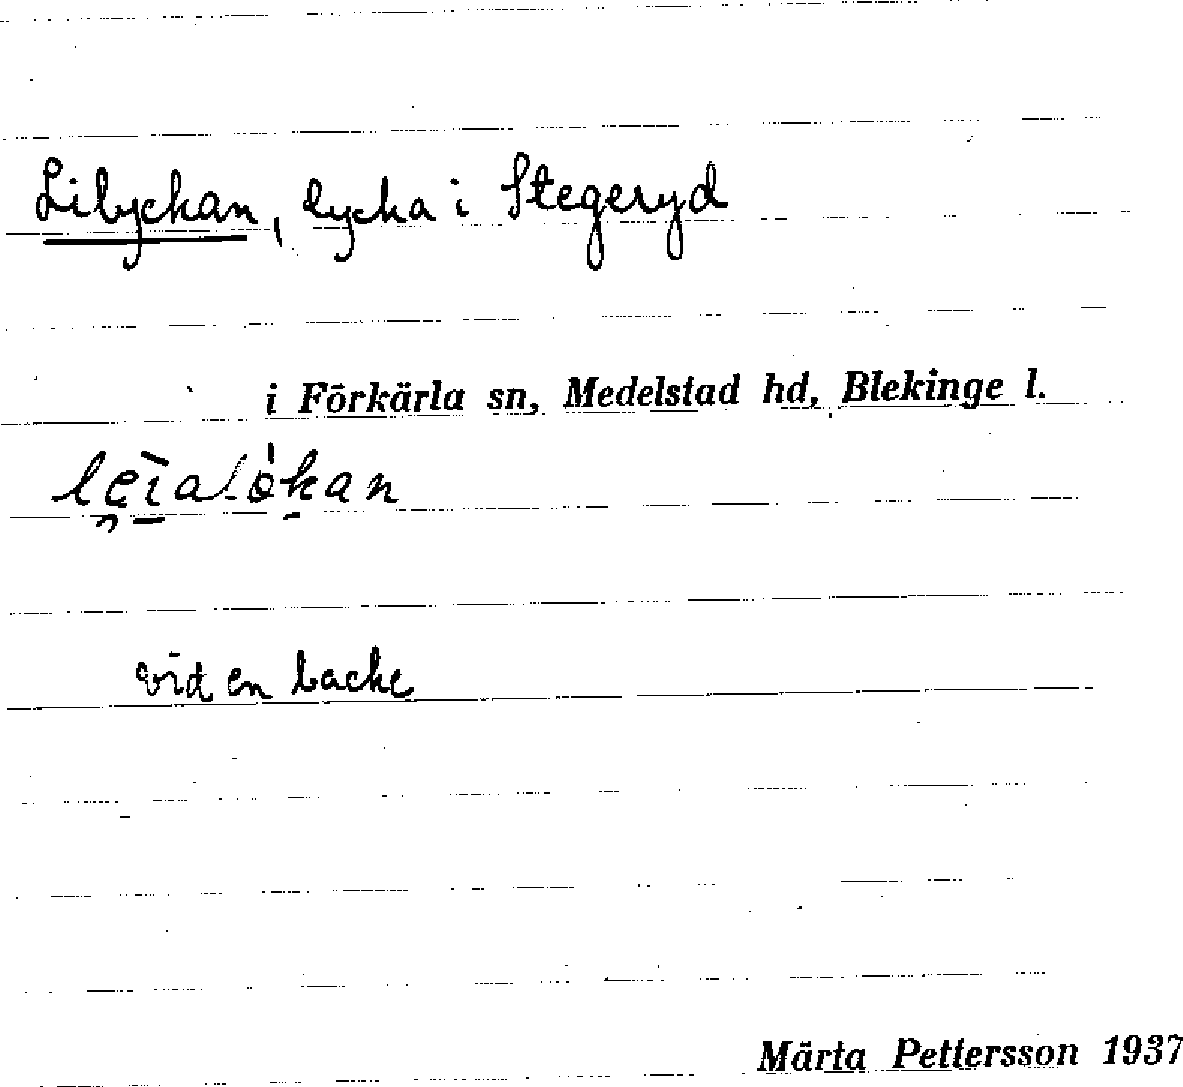 Lilyckan, lycka i Stegeryd
i Förkärla sn, Medelstad hd, Blekinge l.
vid en backe
Märta Pettersson 1937